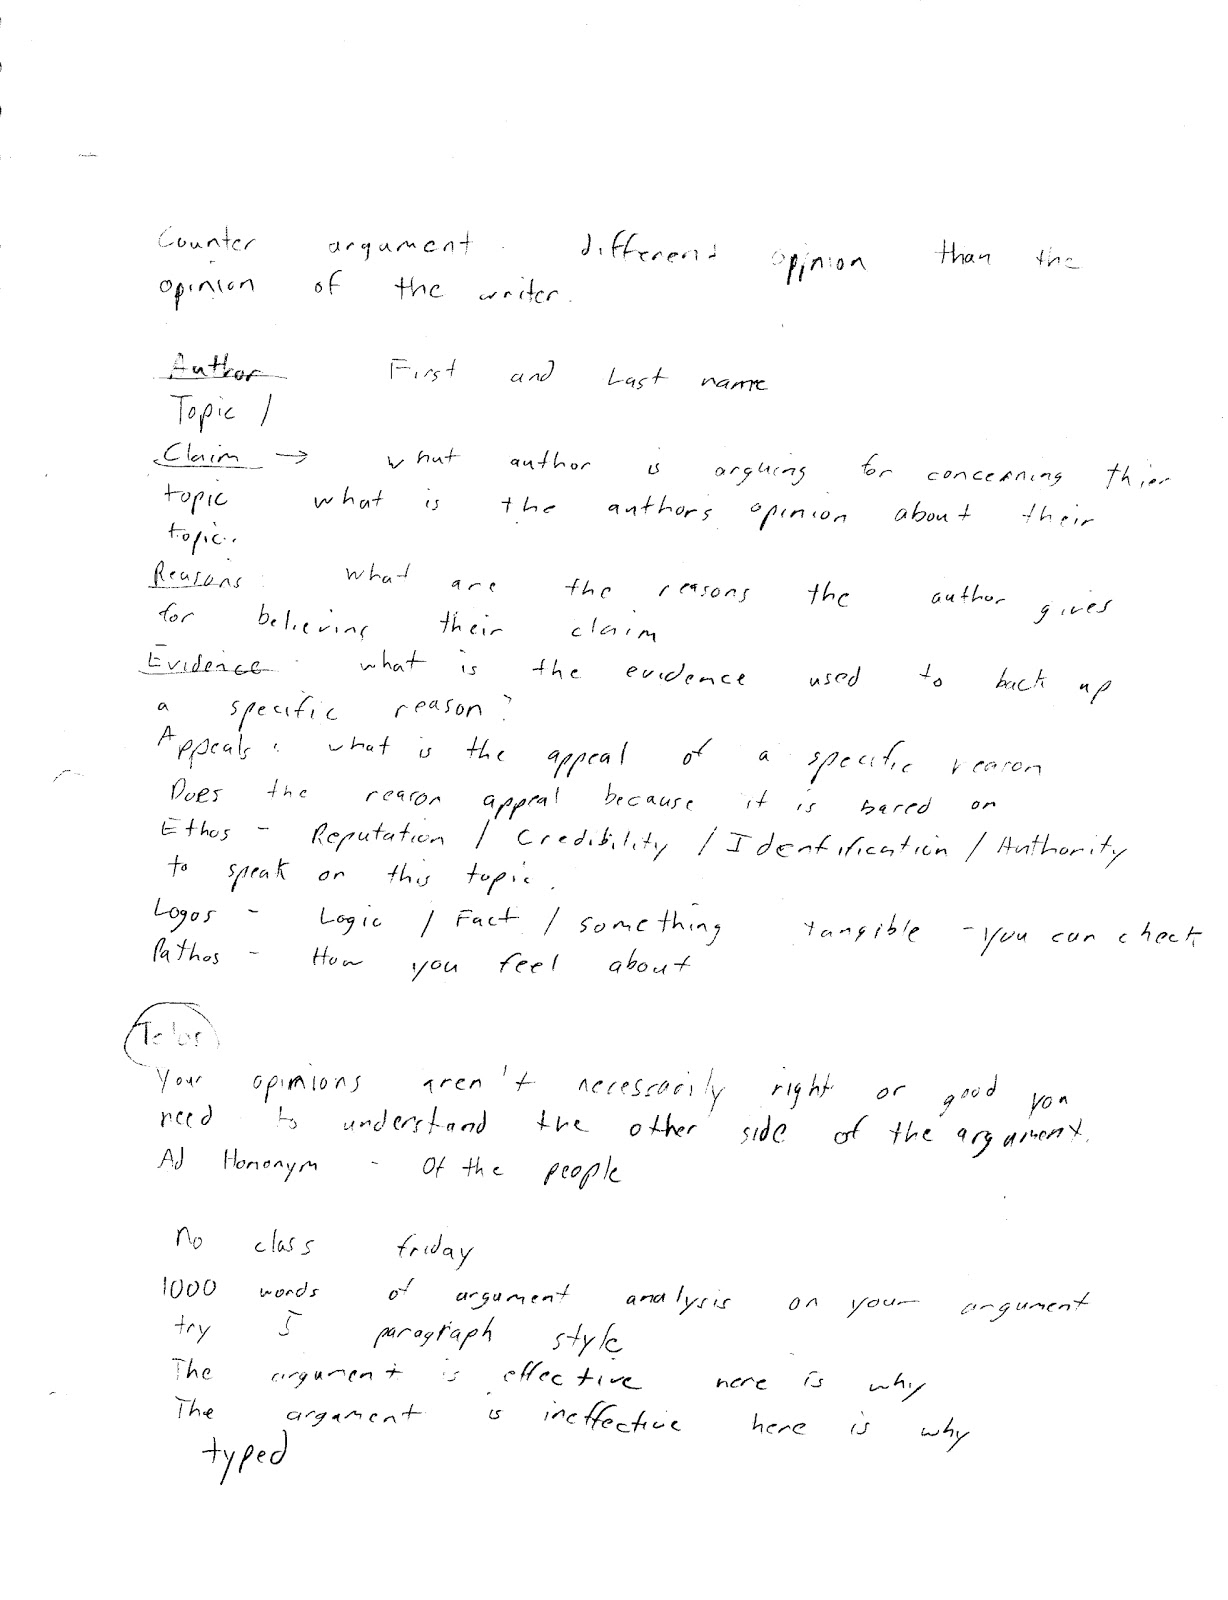 Counter argument. different opinion than the
opinion of the writer.
Author First and Last name
Topic /
Claim → what author is arguing for concerning thier
topic what is the authors opinion about their
topic.
Reasons: what are the reasons the author gives
for believing their claim
Evidence: what is the evidence used to back up
a specific reason?
Appeals: what is the appeal of a specific reason
Does the reason appeal because it is based on
Ethos - Reputation / Credibility / Identification / Authority
to speak on this topic.
Logos - Logic / Fact / something tangible - you can check
Pathos - How you feel about
Telos
Your opinions aren't necessarily right or good you
need to understand the other side of the argument.
Ad Homonym - Of the people
No class friday
1000 words of argument analysis on your argument
try 5 paragraph style
The argument is effective here is why
The argument is ineffective here is why
typed